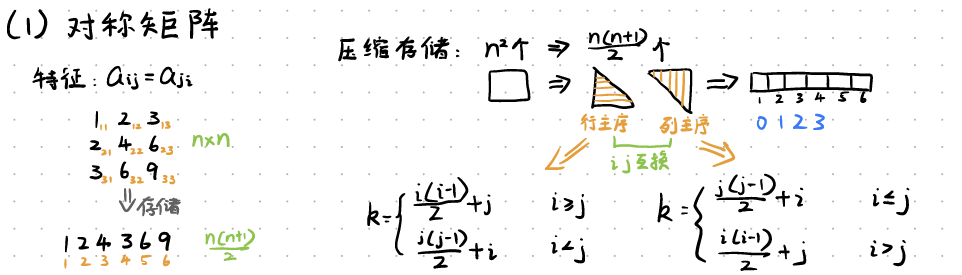 (1) 对称矩阵
特征: aij=aji
1₁₁ 2₁₂ 3₁₃
2₂₁ 4₂₂ 6₂₃ n×n
3₃₁ 6₃₂ 9₃₃
⇓存储
1 2 4 3 6 9 n(n+1)/2
1 2 3 4 5 6
压缩存储: n²个 ⇒ n(n+1)/2 个
⇒ ⇒
1 2 3 4 5 6
0 1 2 3
行主序 列主序
i j 互换
k={ i(i-1)/2+j i≥j
j(j-1)/2+i i<j
k={ j(j-1)/2+i i≤j
i(i-1)/2+j i>j